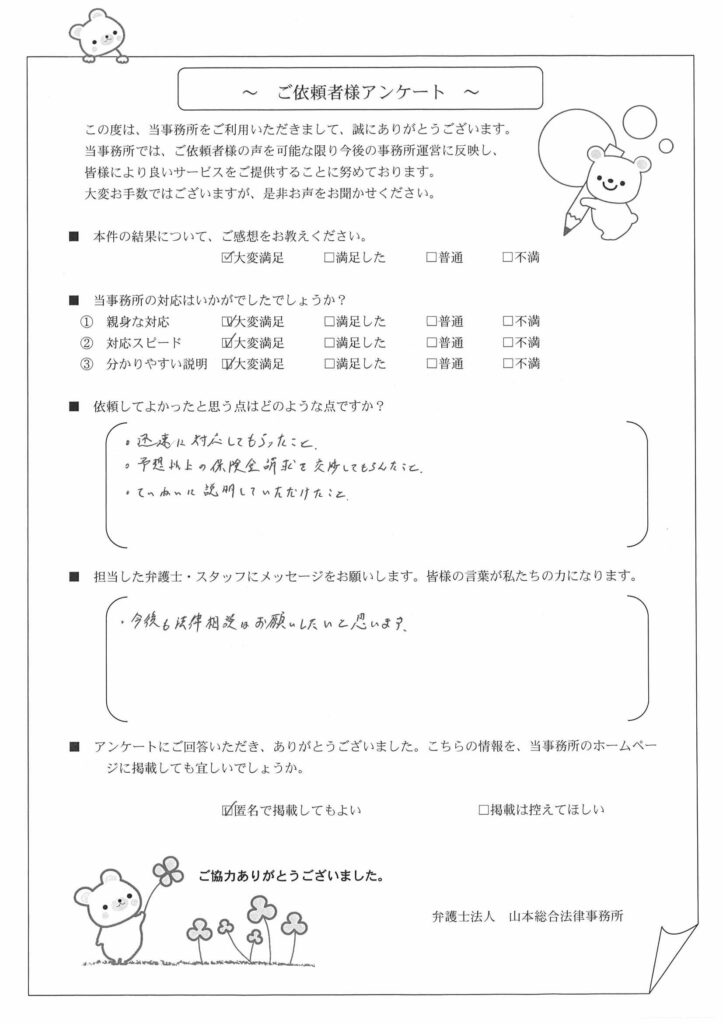 ～　ご依頼者様アンケート　～
この度は、当事務所をご利用いただきまして、誠にありがとうございます。
当事務所では、ご依頼者様の声を可能な限り今後の事務所運営に反映し、
皆様により良いサービスをご提供することに努めております。
大変お手数ではございますが、是非お声をお聞かせください。
■　本件の結果について、ご感想をお教えください。
☑大変満足　□満足した　□普通　□不満
■　当事務所の対応はいかがでしたでしょうか？
①　親身な対応　☑大変満足　□満足した　□普通　□不満
②　対応スピード　☑大変満足　□満足した　□普通　□不満
③　分かりやすい説明　☑大変満足　□満足した　□普通　□不満
■　依頼してよかったと思う点はどのような点ですか？
・迅速に対応してもらったこと.
・予想以上の保険金請求を交渉してもらえたこと.
・ていねいに説明していただけたこと.
■　担当した弁護士・スタッフにメッセージをお願いします。皆様の言葉が私たちの力になります。
・今後も法律相談はお願いしたいと思います.
■　アンケートにご回答いただき、ありがとうございました。こちらの情報を、当事務所のホームペー
ジに掲載しても宜しいでしょうか。
☑匿名で掲載してもよい　□掲載は控えてほしい
ご協力ありがとうございました。
弁護士法人　山本総合法律事務所